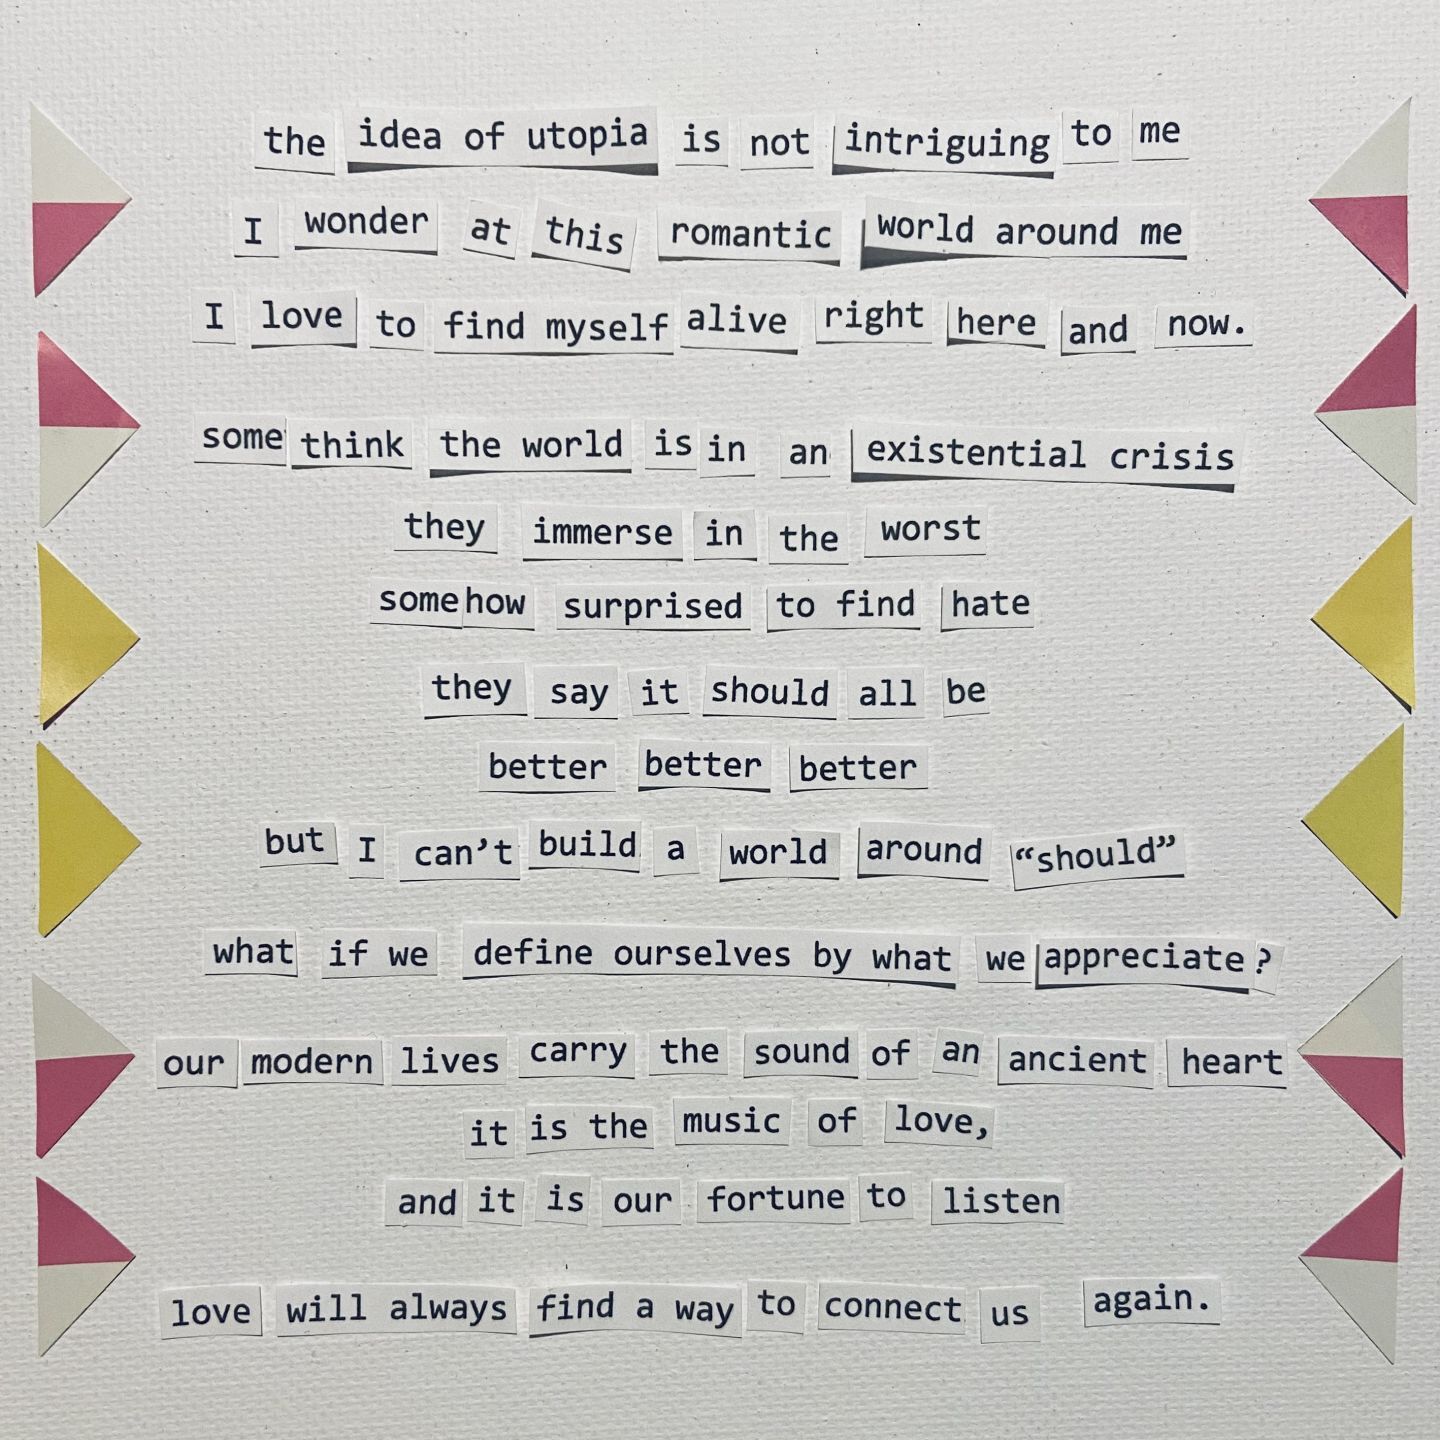 the idea of utopia is not intriguing to me
I wonder at this romantic world around me
I love to find myself alive right here and now.
some think the world is in an existential crisis
they immerse in the worst
somehow surprised to find hate
they say it should all be
better better better
but I can’t build a world around “should”
what if we define ourselves by what we appreciate?
our modern lives carry the sound of an ancient heart
it is the music of love,
and it is our fortune to listen
love will always find a way to connect us again.